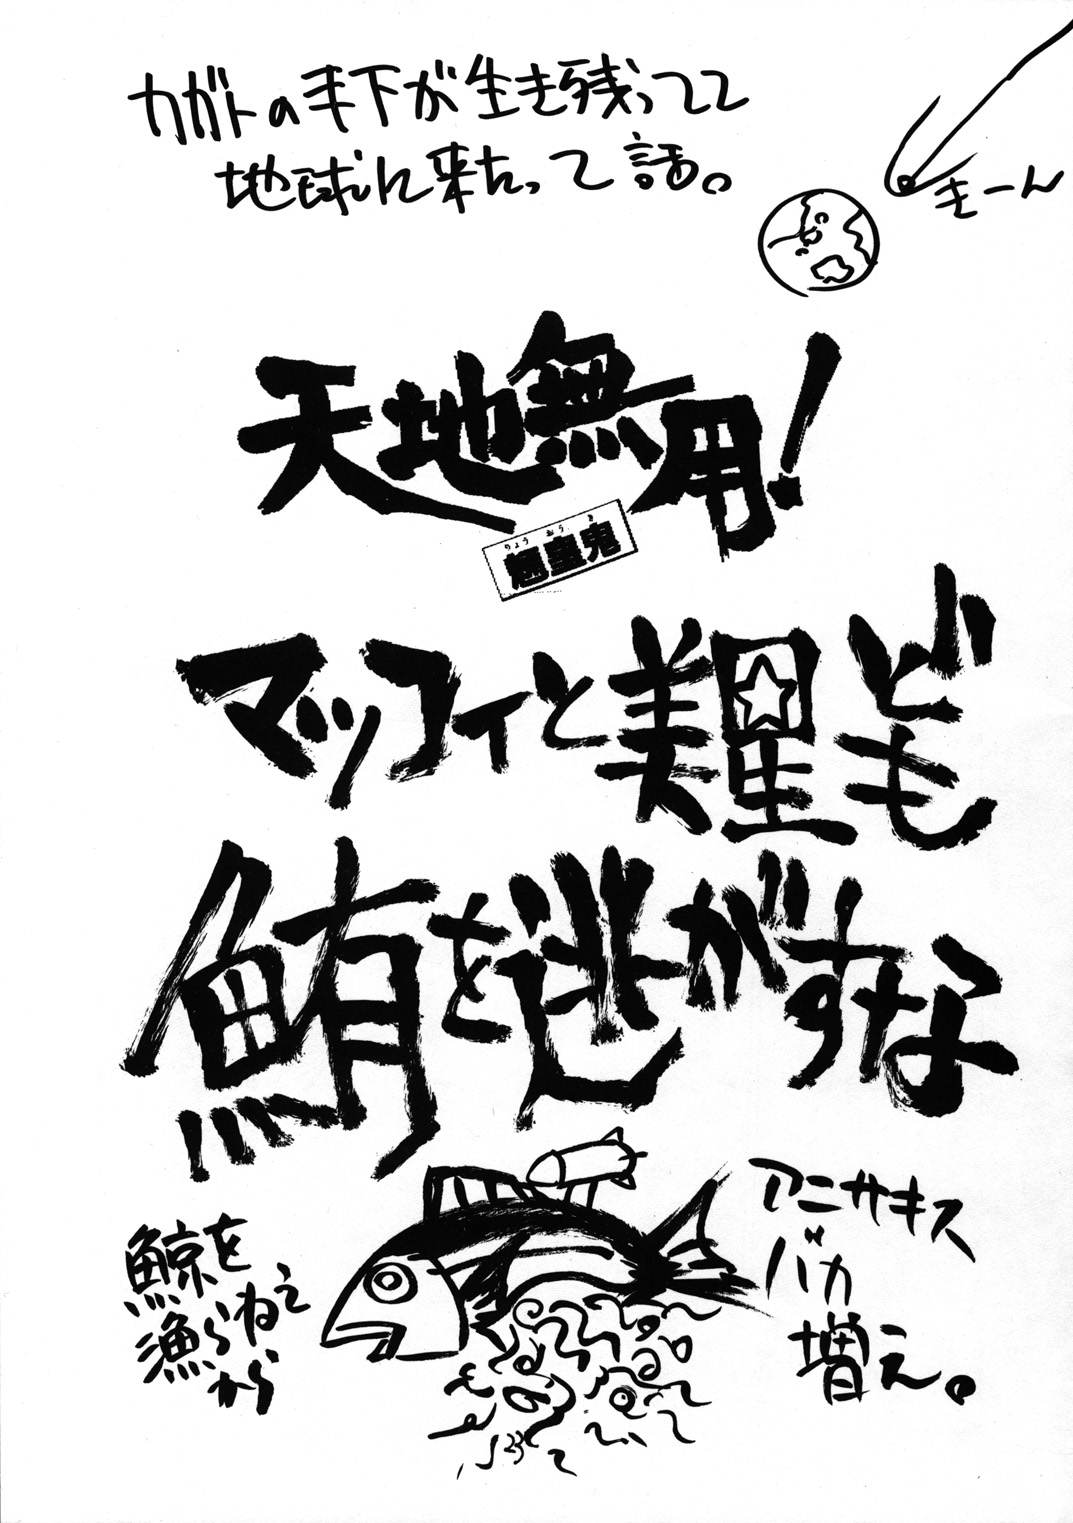 カガトの手下が生き残ってて
地球に来たって話。
きーん
天地無用!
りょうおうき
魎皇鬼
マッコイと美星ども
鮪を逃がすな
アニサキス
バカ
増え。
鯨を
漁らねえ
から